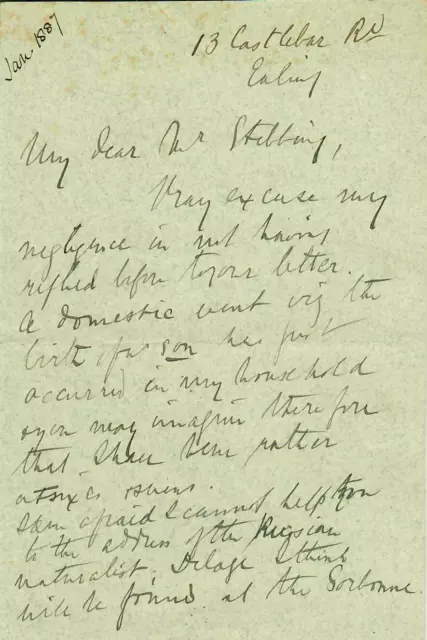 Jan. 1887
13 Castlebar Rd
Ealing
My dear Mr Stebbing,
Pray excuse my
negligence in not having
replied before to your letter.
A domestic event viz the
birth of a son has just
occurred in my household
& you may imagine therefore
that I have been rather
at sixes & sevens.
I am afraid I cannot help you
to the address of the Russian
naturalist. Delage I think
will be found at the Sorbonne.